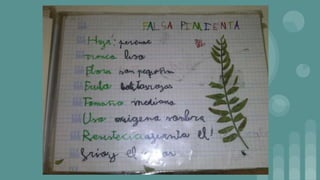 FALSA PIMIENTA
Hoja: perenne
Tronco liso
Flora son pequeñas
Fruto bolitas rojas
Tamaño mediano
Uso oxigena sombra
Resistecia aguenta el
frio y el